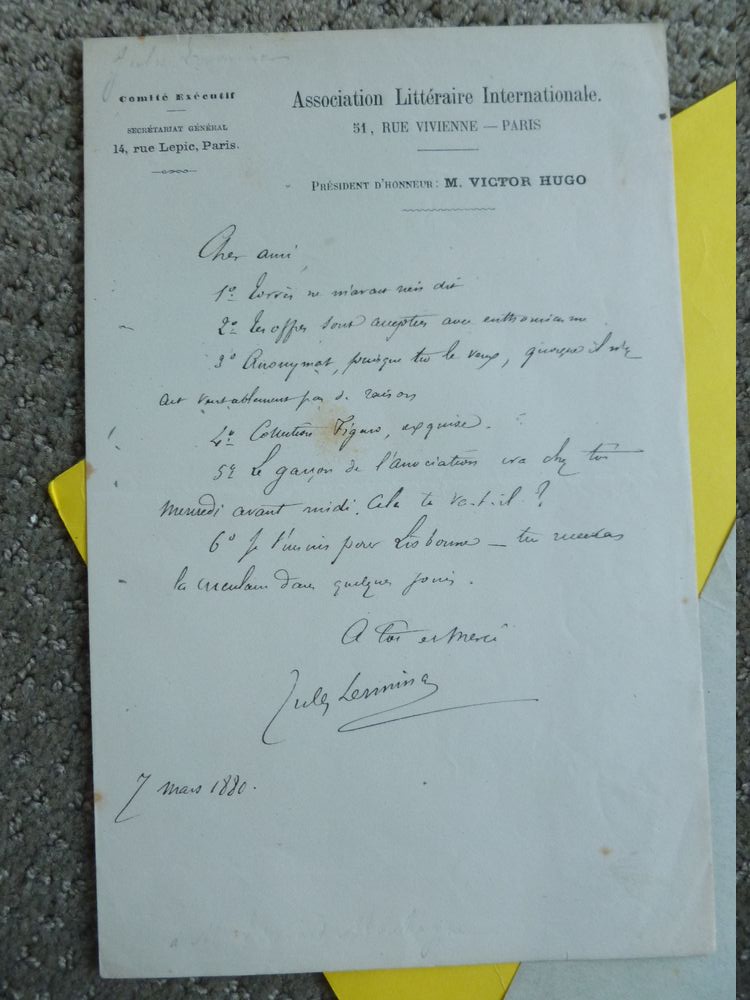 Comité Exécutif
SECRÉTARIAT GÉNÉRAL
14, rue Lepic, Paris.
Association Littéraire Internationale.
51, RUE VIVIENNE — PARIS
PRÉSIDENT D'HONNEUR: M. VICTOR HUGO
Cher ami
1º Torrès ne m'avait rien dit
2º Les offres sont acceptées avec enthousiasme
3º Anonymat, puisque tu le veux, quoique il n'y
ait véritablement pas de raison
4º Collection Figaro, exquise.
5º Le garçon de l'association ira chez toi
Mercredi avant midi. Cela te va-t-il ?
6º Je t'inscris pour Lisbonne — tu recevras
la circulaire dans quelques jours.
A toi et Merci
Jules Lermina
7 mars 1880.